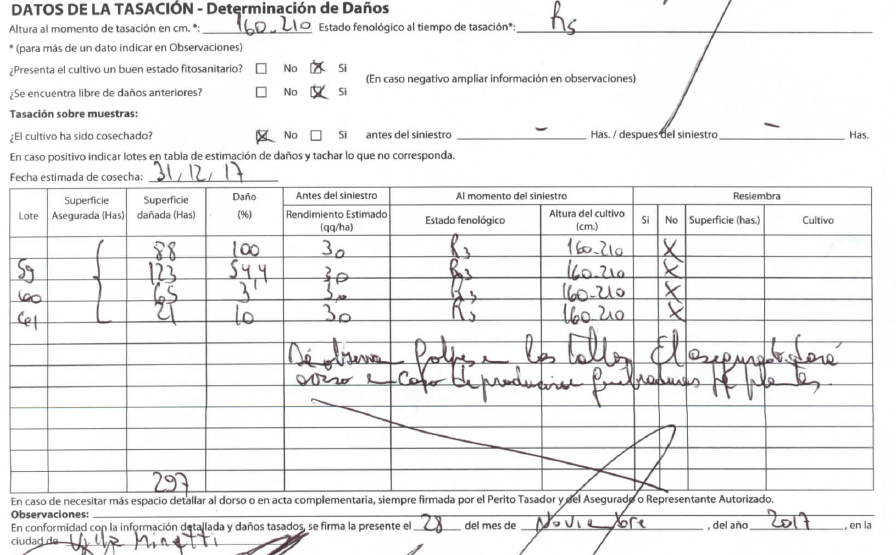 DATOS DE LA TASACIÓN - Determinación de Daños
Altura al momento de tasación en cm. *: 160-210 Estado fenológico al tiempo de tasación*: R5
* (para más de un dato indicar en Observaciones)
¿Presenta el cultivo un buen estado fitosanitario? No X Si
(En caso negativo ampliar información en observaciones)
¿Se encuentra libre de daños anteriores? No X Si
Tasación sobre muestras:
¿El cultivo ha sido cosechado? X No Si antes del siniestro - Has. / despues del siniestro - Has.
En caso positivo indicar lotes en tabla de estimación de daños y tachar lo que no corresponda.
Fecha estimada de cosecha: 31/12/17
Lote Superficie Asegurada (Has) Superficie dañada (Has) Daño (%) Antes del siniestro Rendimiento Estimado (qq/ha) Al momento del siniestro Estado fenológico Altura del cultivo (cm.) Resiembra Si No Superficie (has.) Cultivo
88 100 30 R3 160-210 X
59 123 54,4 30 R3 160-210 X
60 65 31 30 R3 160-210 X
61 21 10 30 R3 160-210 X
Se observa Golpes en los tallos. El asegurado dará
aviso en caso de producirse quebraduras de plantas.
297
En caso de necesitar más espacio detallar al dorso o en acta complementaria, siempre firmada por el Perito Tasador y del Asegurado o Representante Autorizado.
Observaciones:
En conformidad con la información detallada y daños tasados, se firma la presente el 28 del mes de Noviembre , del año 2017 , en la
ciudad de Villa Minetti